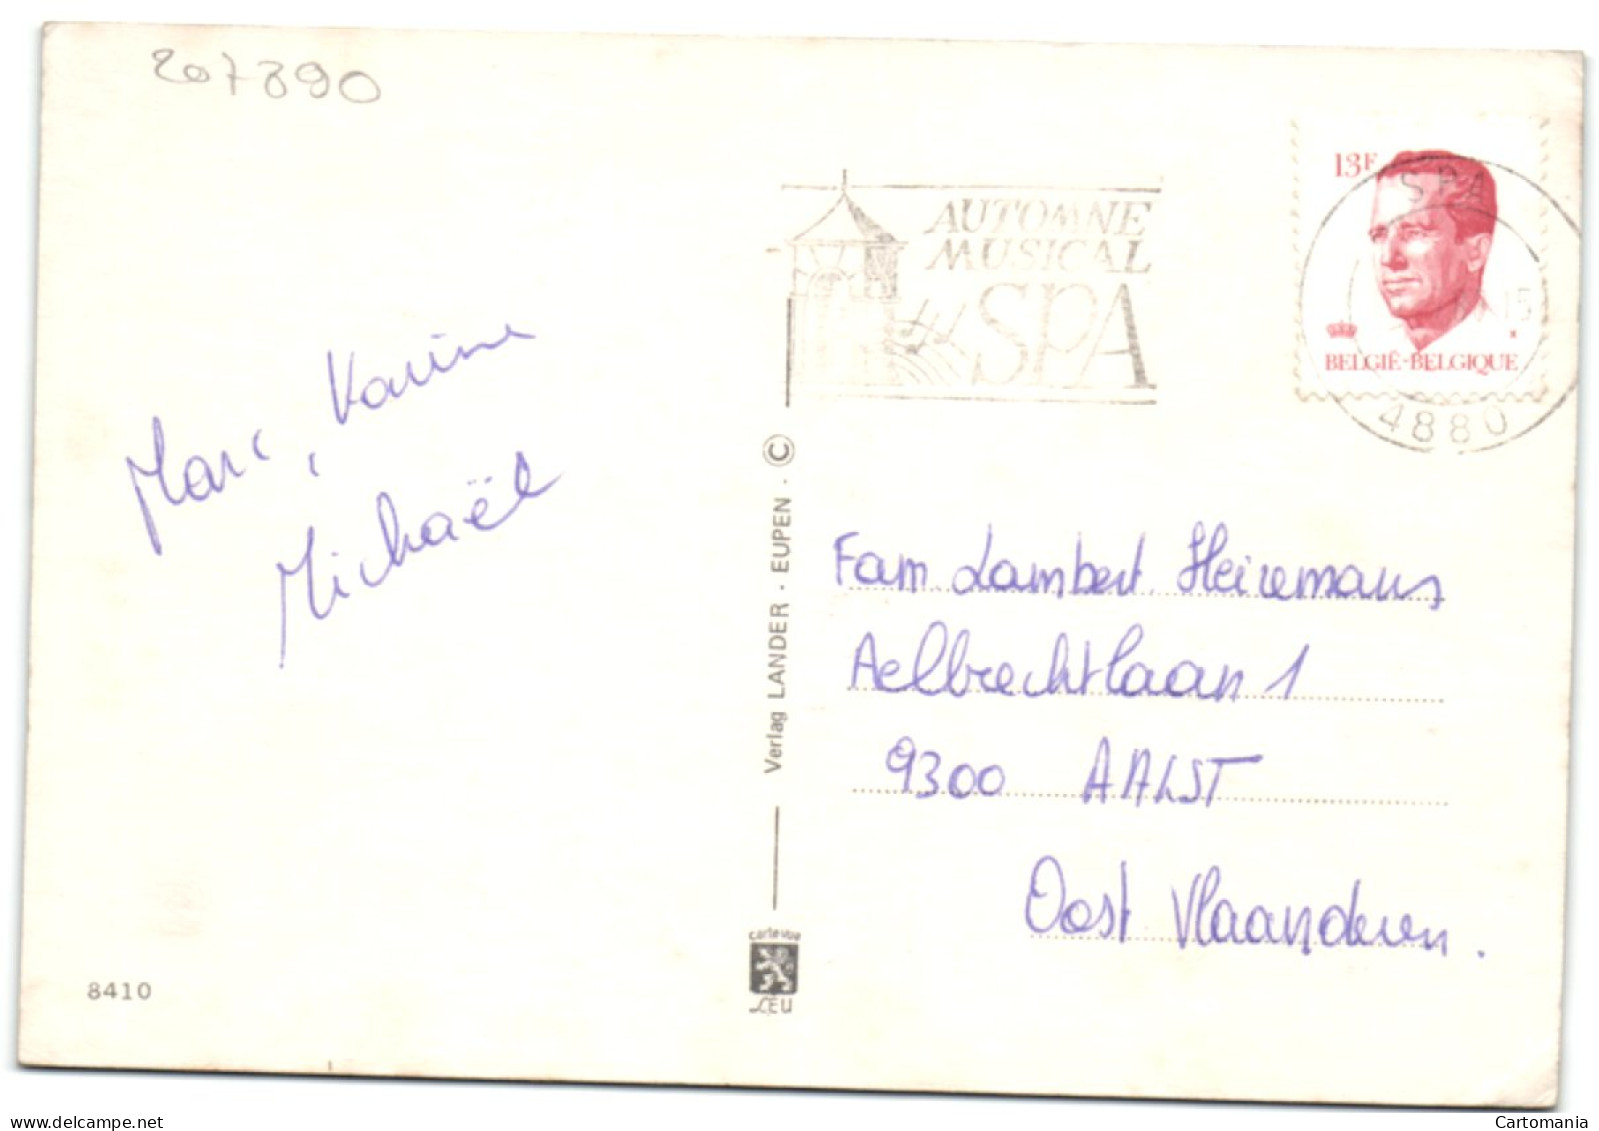 207890
AUTOMNE
MUSICAL
SPA
13F
SPA
15
BELGIË-BELGIQUE
4880
Marc, Karine
Michaël
Verlag LANDER · EUPEN · ©
Fam Lambert Heiremans
Aelbrechtlaan 1
9300 AALST
Oost Vlaanderen.
8410
cartevue
LCEU
delcampe.net
Cartomania